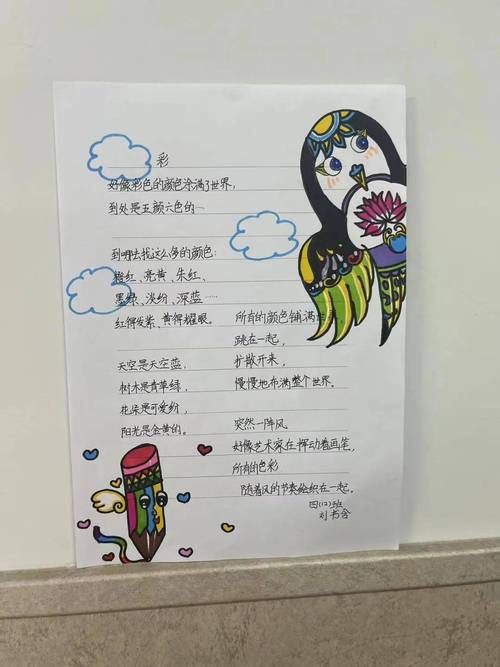 彩
好像彩色的颜色涂满了世界，
到处是五颜六色的…
到哪去找这么多的颜色：
橙红、亮黄、朱红、
墨绿、淡纷、深蓝……
红得发紫、黄得耀眼。
天空是天空蓝，
树木是青草绿，
花朵是可爱纷，
阳光是金黄的。
所有的颜色铺满世界，
跳在一起，
扩散开来，
慢慢地布满整个世界。
突然一阵风
好像艺术家在挥动着画笔，
所有的色彩
随着风的节奏绘织在一起。
四(12)班
刘书含